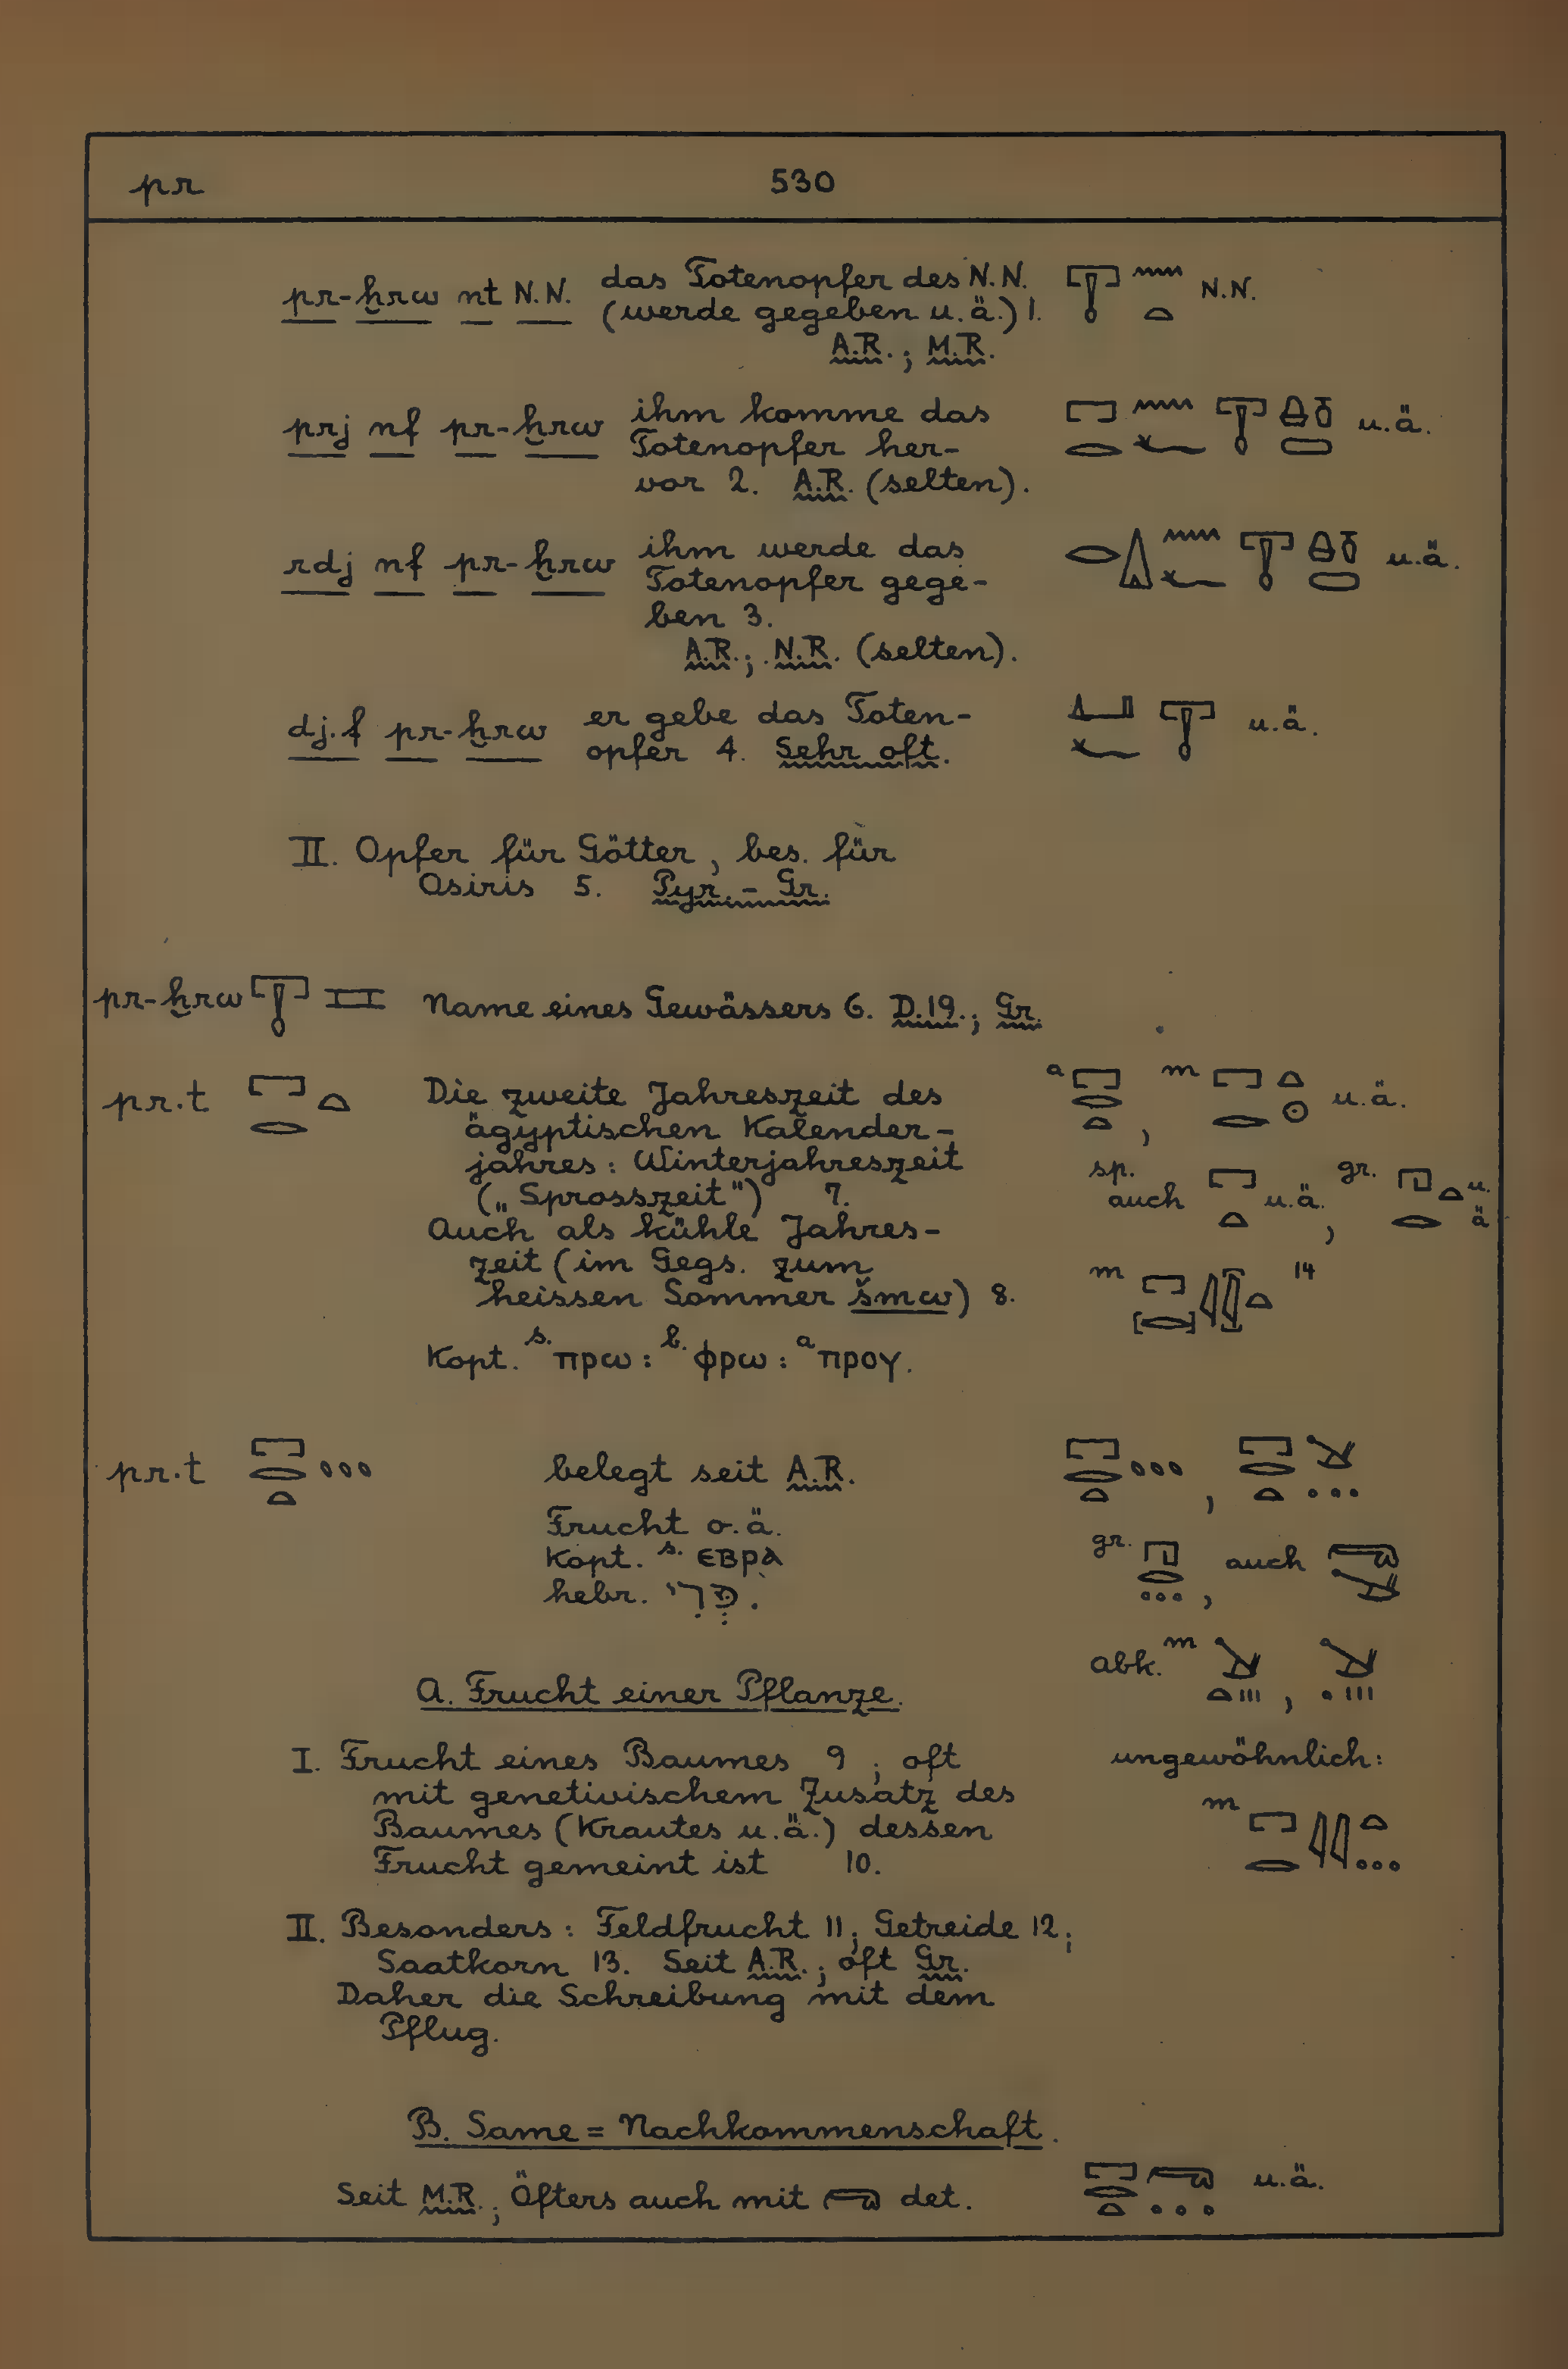 pr 530
pr-ḫrw nt N.N. das Totenopfer des N.N. 𓉓 𓈖𓏏 N.N.
(werde gegeben u.ä.) 1.
A.R.; M.R.
prj nf pr-ḫrw ihm komme das 𓉐𓂋 𓈖𓆑 u.ä.
Totenopfer her-
vor 2. A.R. (selten).
rdj nf pr-ḫrw ihm werde das 𓂋𓏙 𓈖𓆑 u.ä.
Totenopfer gege-
ben 3.
A.R.; N.R. (selten).
dj.f pr-ḫrw er gebe das Toten- u.ä.
opfer 4. Sehr oft.
II. Opfer für Götter, bes. für
Osiris 5. Pyr.-Gr.
pr-ḫrw 𓉓𓈘 Name eines Gewässers 6. D.19.; Gr.
pr.t 𓉐𓂋𓏏 Die zweite Jahreszeit des a 𓉐𓂋𓏏, m 𓉐𓂋𓏏𓇳 u.ä.
ägyptischen Kalender-
jahres: Winterjahreszeit sp.
(„Sprosszeit") 7. auch 𓉐𓏏 u.ä., gr. 𓉔𓂋𓏏 u.ä
Auch als kühle Jahres-
zeit (im Gegs. zum m 14
heissen Sommer šmw) 8.
Kopt. s. ⲡⲣⲱ : b. ⲫⲣⲱ : a ⲡⲣⲟⲩ.
pr.t 𓉐𓂋𓏏𓈒𓈒𓈒 belegt seit A.R. 𓉐𓂋𓏏𓈒𓈒𓈒, 𓉐𓂋𓏏𓍁𓈒𓈒𓈒
Frucht o.ä.
Kopt. s. ⲉⲃⲣⲁ gr. 𓉔𓂋𓈒𓈒𓈒, auch 𓂺𓍁
hebr. פְּרִי.
abk. m 𓍁𓏏𓏥, 𓍁𓈒𓏥
A. Frucht einer Pflanze.
I. Frucht eines Baumes 9; oft ungewöhnlich:
mit genetivischem Zusatz des m 𓉐𓂋𓇌𓏏𓈒𓈒𓈒
Baumes (Krautes u.ä.) dessen
Frucht gemeint ist 10.
II. Besonders: Feldfrucht 11; Getreide 12;
Saatkorn 13. Seit A.R.; oft Gr.
Daher die Schreibung mit dem
Pflug.
B. Same = Nachkommenschaft.
Seit M.R.; Öfters auch mit 𓂺 det. 𓉐𓂋𓏏𓂺𓈒𓈒𓈒 u.ä.